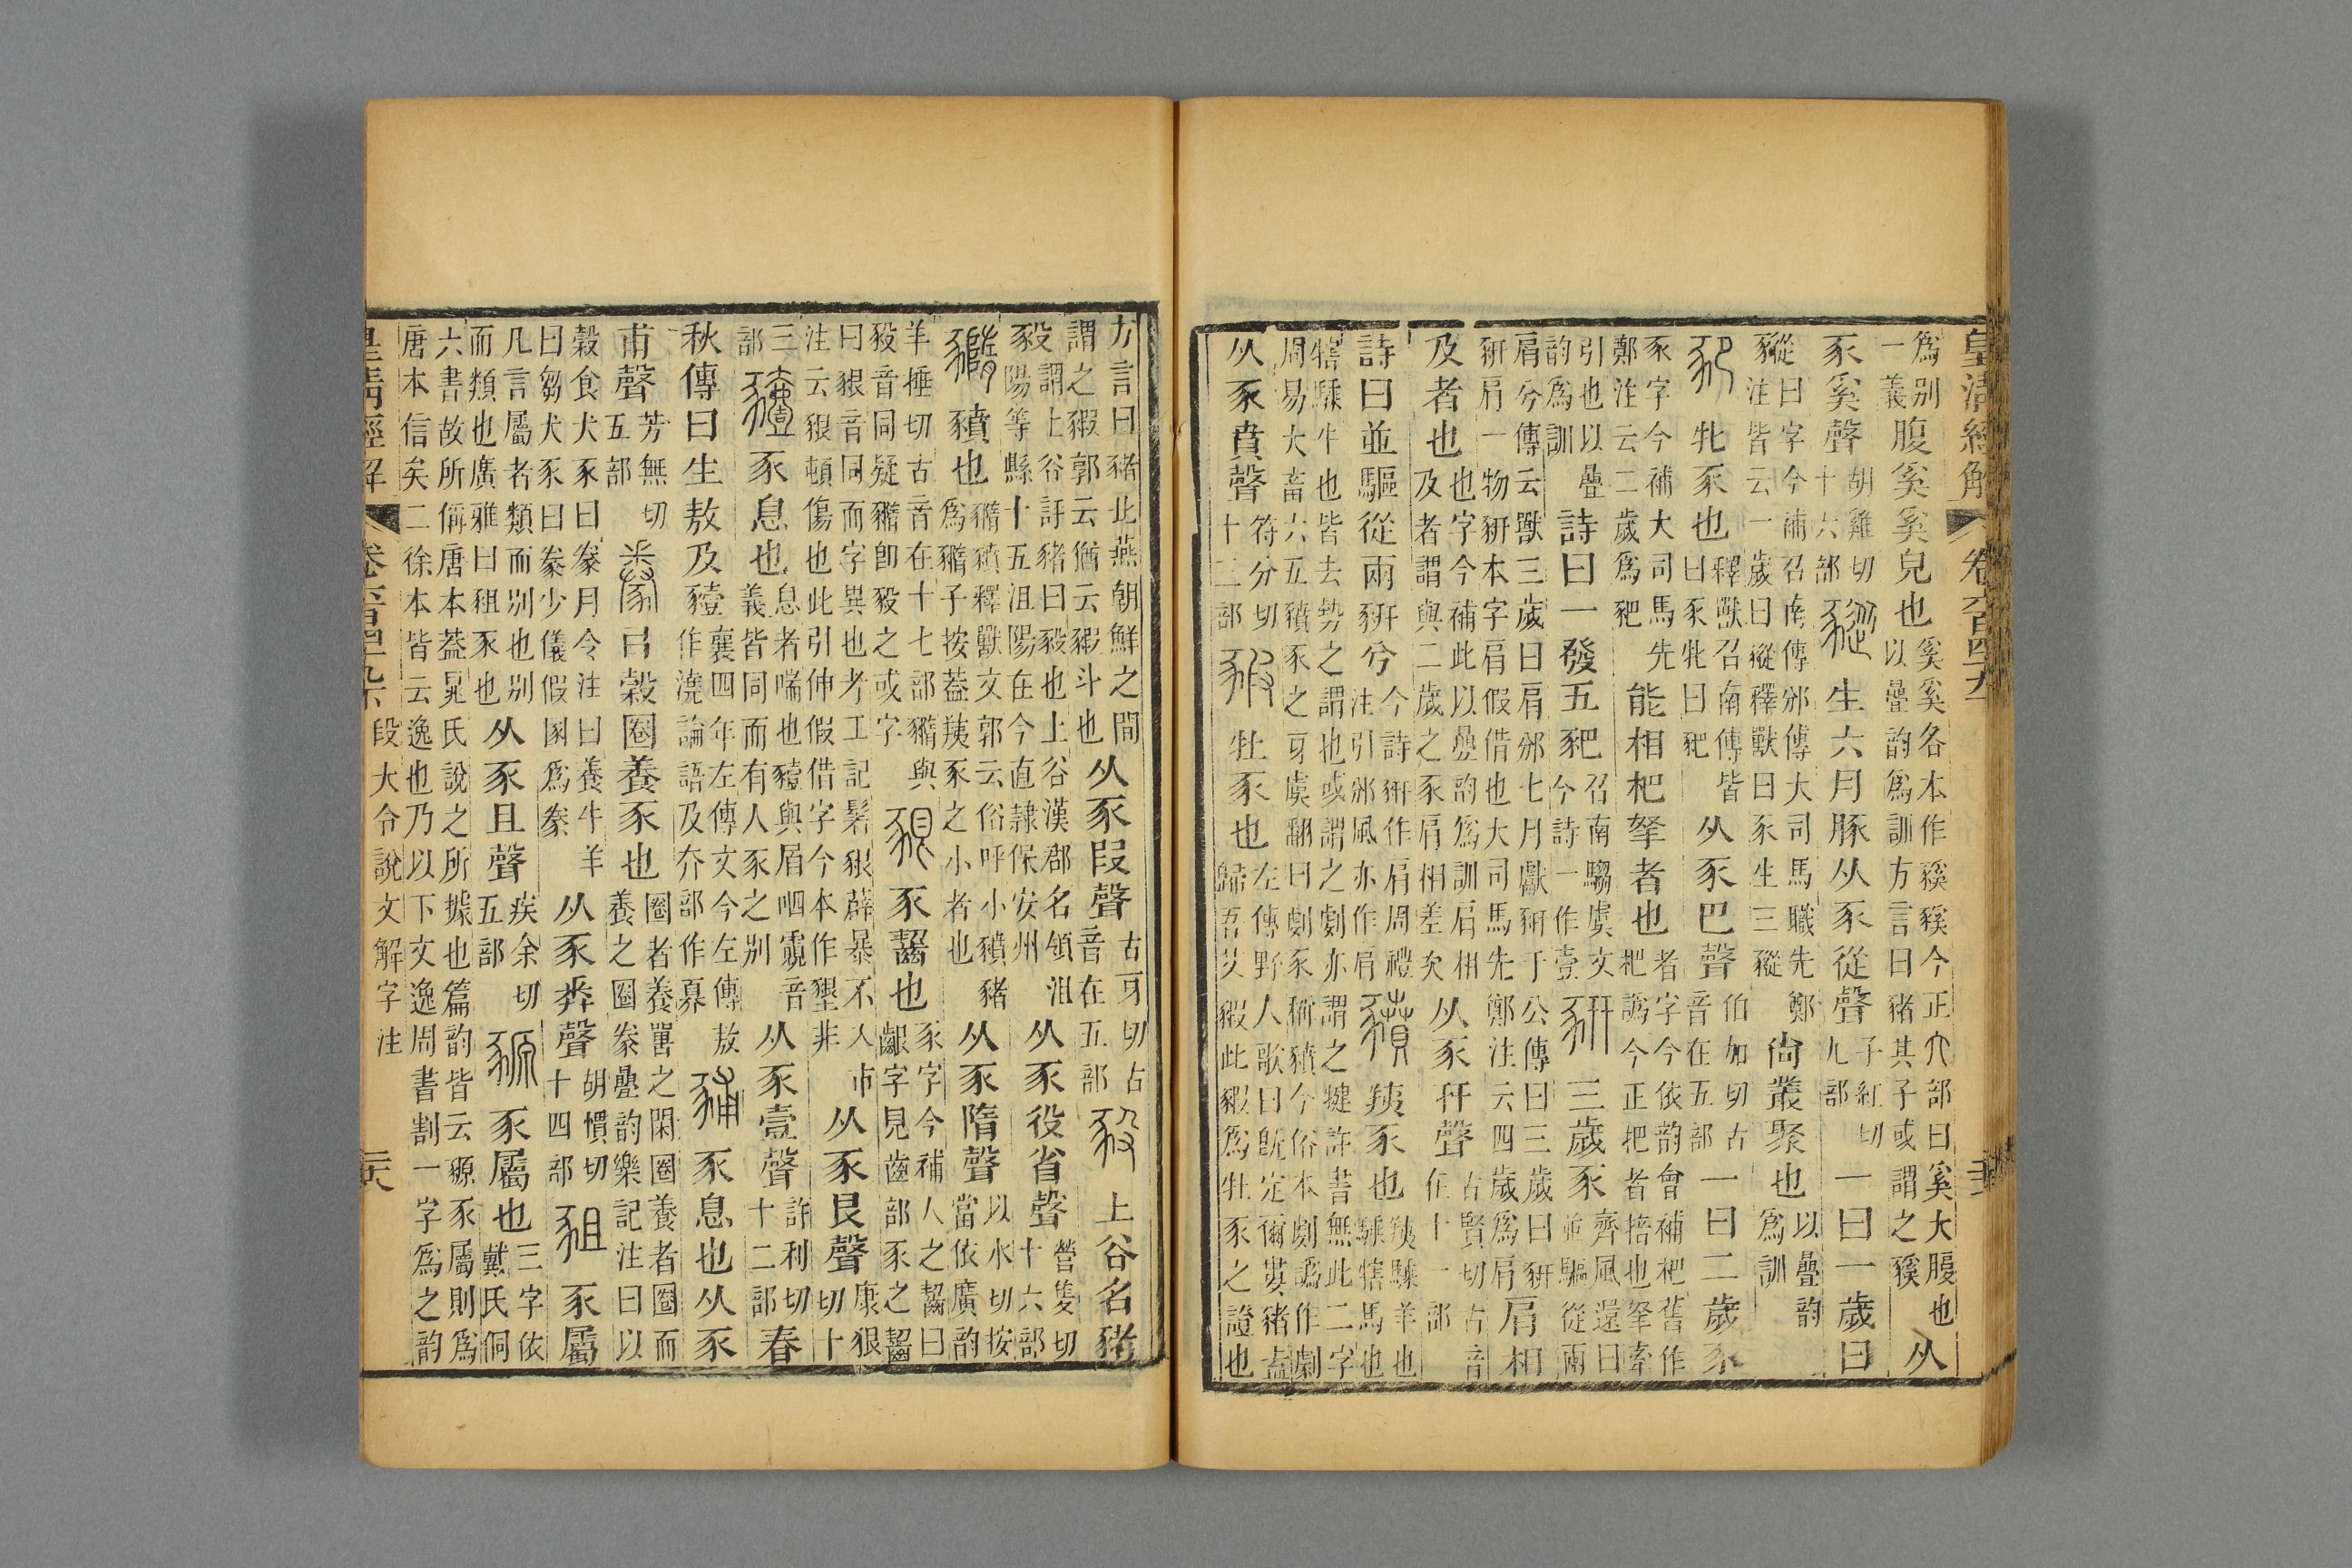 皇清經解 卷六百四十九
爲別一義腹奚奚皃也奚奚各本作豯豯今正穴部曰奚大腹也以疊韵爲訓方言曰豬其子或謂之豯从
豕奚聲胡雞切十六部豵生六月豚从豕從聲子紅切九部一曰一歲曰
豵從曰字今補召南傳邠傳大司馬職先鄭注皆云一歲曰豵釋獸曰豕生三豵尙叢聚也以疊韵爲訓
豝牝豕也釋獸召南傳皆曰豕牝曰豝从豕巴聲伯加切古音在五部一曰二歲豕
豕字今補大司馬先鄭注云二歲爲豝能相杷拏者也者字今依韵會補杷舊作杷譌今正把者掊也拏牽
引也以疊韵爲訓詩曰一發五豝召南騶虞文今詩一作壹豜三歲豕齊風還曰並驅從兩
肩兮傳云獸三歲曰肩邠七月獻豜于公傳曰三歲曰豜豜肩一物豜本字肩假借也大司馬先鄭注云四歲爲肩肩相
及者也也字今補此以疊韵爲訓肩相及者謂與二歲之豕肩相差次从豕幵聲古賢切古音在十一部
詩曰並驅從兩豜兮今詩豜作肩周禮注引邠風亦作肩豶羠豕也羠騬羊也騬犗馬也
犗騬牛也皆去勢之謂也或謂之劇亦謂之犍許書無此二字周易大畜六五豶豕之牙虞翻曰劇豕稱豶今俗本劇譌作劇
从豕賁聲符分切十二部豭牡豕也左傳野人歌曰旣定爾婁豬盍歸吾艾豭此豭爲牡豕之證也
方言曰豬北燕朝鮮之閒謂之豭郭云猶云豭斗也从豕叚聲古牙切古音在五部豛上谷名豬
豛謂上谷評豬曰豛也上谷漢郡名領沮陽等縣十五沮陽在今直隸保安州从豕役省聲營隻切十六部
豶也豶釋獸文郭云俗呼小豶豬爲子按葢羠豕之小者也从豕隋聲以水切按當依廣韵
羊捶切古音在十七部與豛音同疑卽豛之或字豤豕齧也豕字今補人之齧曰齦字見齒部豕之齧
曰豤音同而字異也考工記髺豤薜暴不入市注云豤頓傷也此引伸假借字今本作墾非从豕艮聲康很切十
三部豷豕息也息者喘也豷與眉呬音義皆同而有人豕之別从豕壹聲許利切十二部春
秋傳曰生敖及豷襄四年左傳文今左傳敖作澆論語及夰部作奡豧豕息也从豕
甫聲芳無切五部豢㠯穀圈養豕也圈者養嘼之閑圈養者圈而養之圈豢疊韵樂記注曰以
穀食犬豕曰豢月令注曰養牛羊曰芻犬豕曰豢少儀假圂爲豢从豕𠔉聲胡慣切十四部豠豕屬
凡言屬者類而別也別而類也廣雅曰豠豕也从豕且聲疾余切五部豲豕屬也三字依戴氏侗
六書故所偁唐本葢晁氏說之所據也篇韵皆云豲豕屬則爲唐本信矣二徐本皆云逸也乃以下文逸周書割一字爲之韵
皇清經解 卷六百四十九 段大令說文解字注 三六